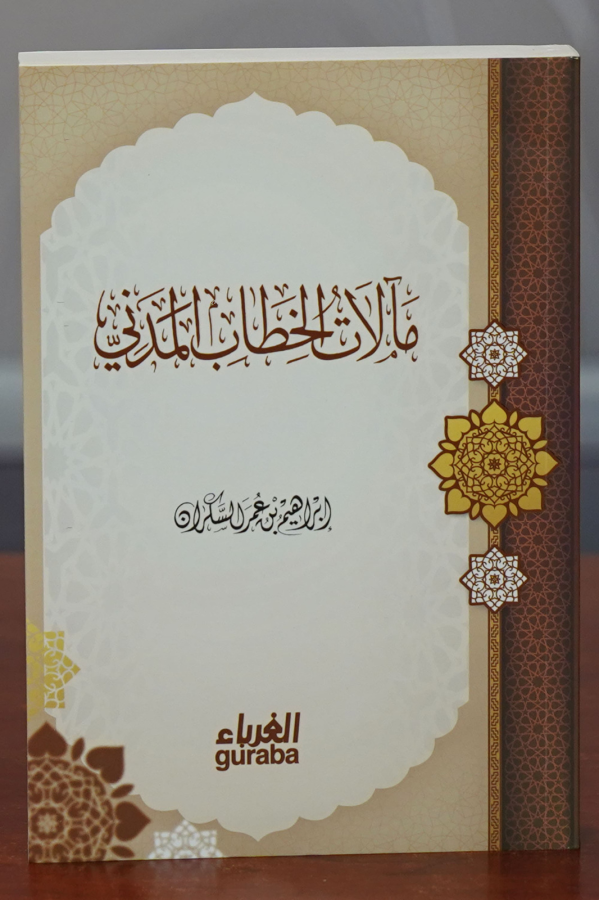 مَآلَاتُ الخِطَابِ المَدَنِيِّ
إبْرَاهِيْم بْن عُمَر السَّكْرَان
الغرباء
guraba